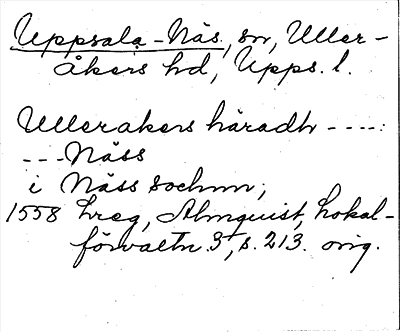 Uppsala-Näs, sn, Uller-
åkers hd, Upps. l.
Ullerakers häradh ----:
---Näss
i Näss sochnn,
1558 Lreg, Almquist, Lokal-
förvaltn 3, s. 213. orig.